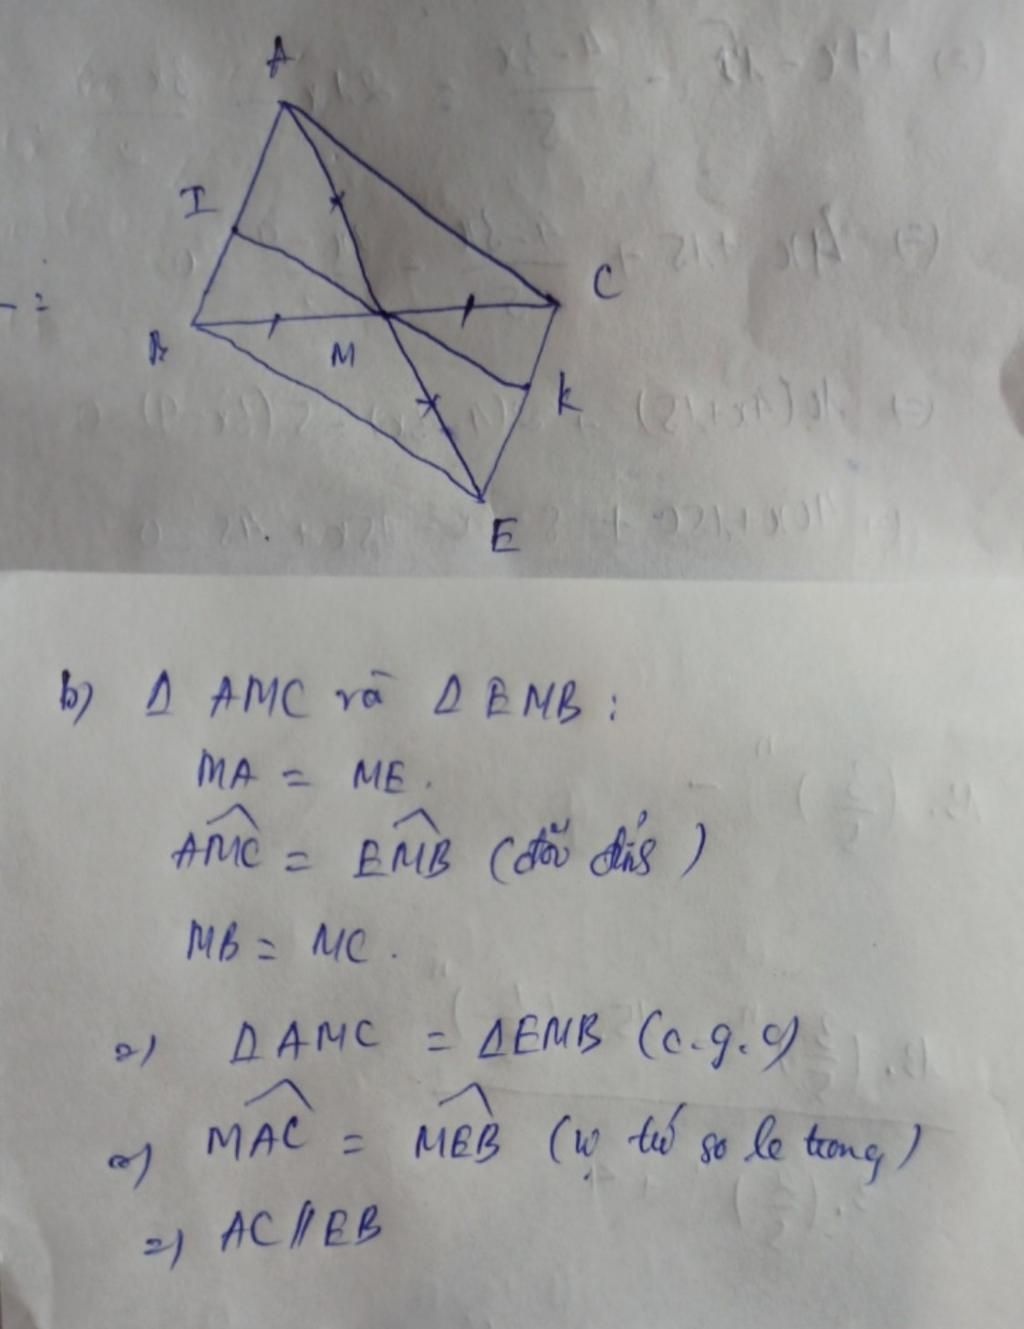 A
I
C
B
M
K
E
b) Δ AMC và Δ EMB :
MA = ME.
AMC = EMB (đối đỉnh)
MB = MC.
=) Δ AMC = ΔEMB (c.g.c)
=) MAC = MEB (vị trí so le trong)
=) AC // EB